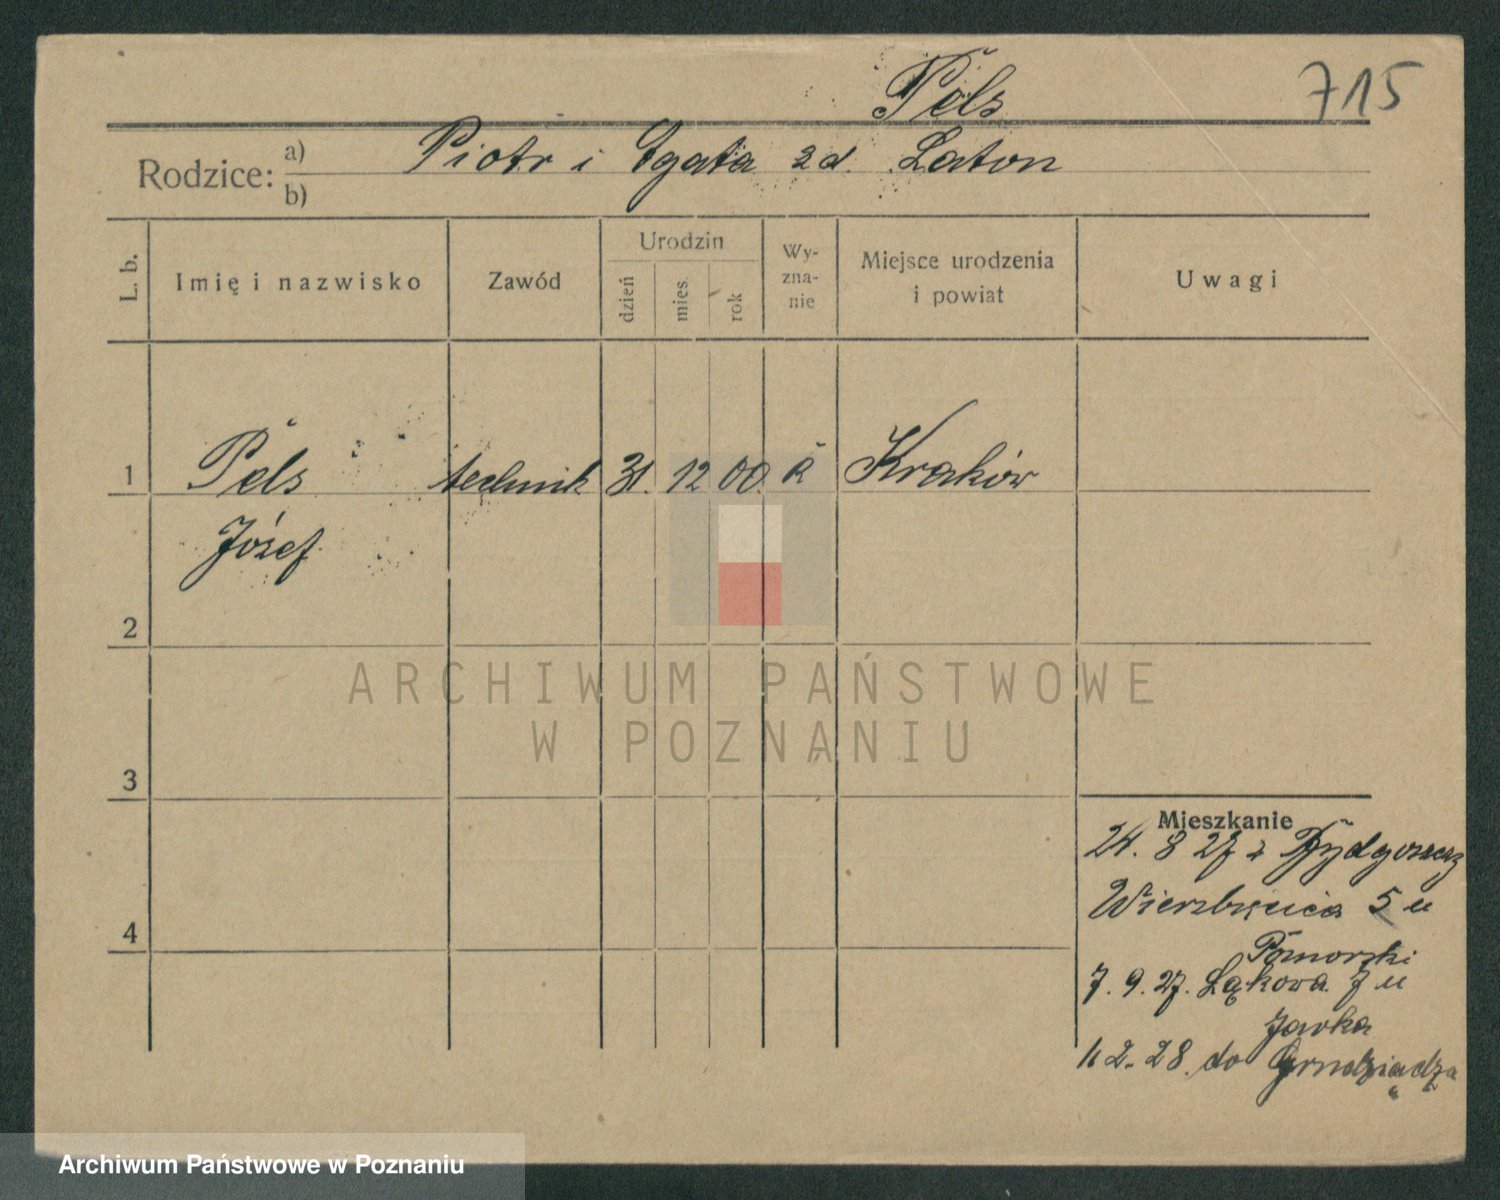 Pels
715
Rodzice:
a) Piotr i Agata zd. Laton
b)
L. b.
Imię i nazwisko
Zawód
Urodzin
dzień
mies.
rok
Wy-
zna-
nie
Miejsce urodzenia
i powiat
Uwagi
1 Pels technik 31. 12 00. R Kraków
Józef
2
3
4
Mieszkanie
24. 8 27 z Bydgoszczy
Wierzbięcice 5 u
Pomorski
7. 9. 27. Łąkowa 7 u
Jarka
2. 28. do Grudziądza
ARCHIWUM PAŃSTWOWE
W POZNANIU
Archiwum Państwowe w Poznaniu